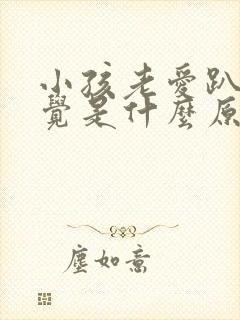 小孩老愛趴
覺是什麼原
塵如意